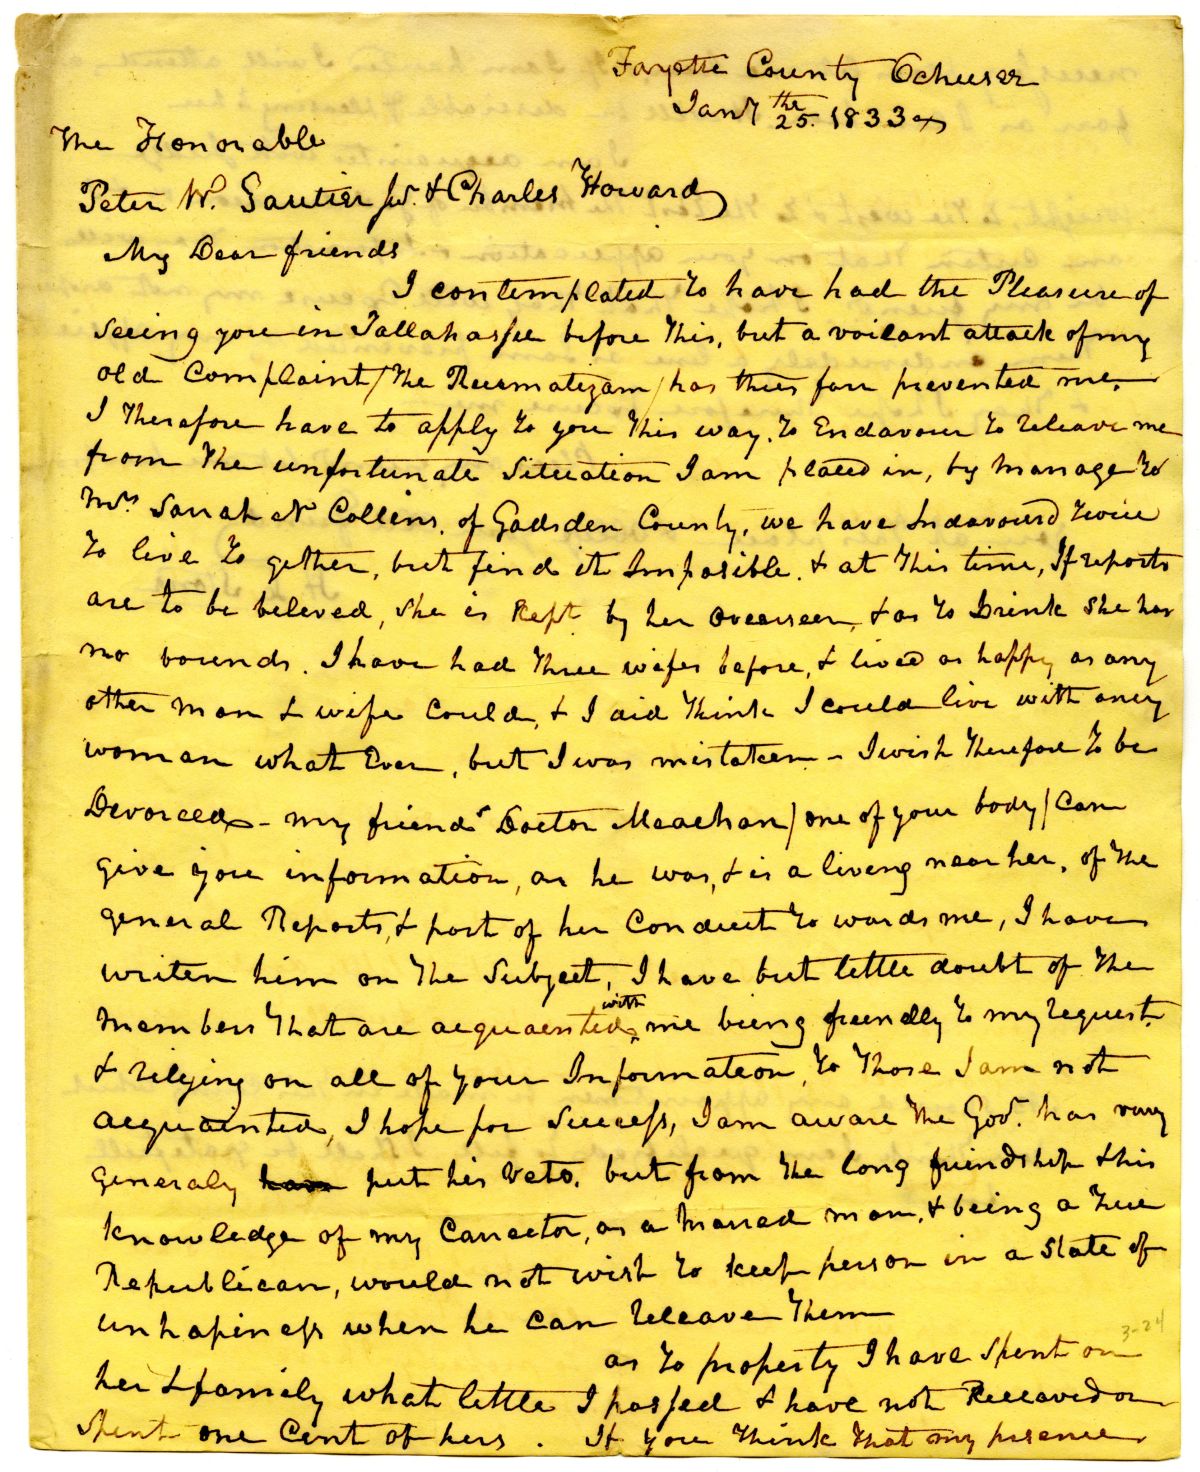 Fayette County Ochusee
Jany the 25. 1833
The Honorable
Peter W. Gautier Jur. & Charles Howard
My Dear friends
I contemplated to have had the Pleasure of
seeing you in Tallahassee before this, but a voilant attack of my
old Complaint / the Reumatizam / has thus far prevented me.
I therefore have to apply to you this way. to Endavour to releave me
from the unfortunate situation I am placed in, by marrage to
Mrs. Sarah N Collins, of Gadsden County, we have Indavourd twice
to live to gether, but find it Imposible. & at this time, If reports
are to be beleved, she is kept by her overseer, & as to Drink she has
no bounds. I have had three wifes before, & lived as happy as any
other man & wife could, & I did think I could live with any
woman what Ever, but I was mistaken - I wish therefore to be
Devorced - my friend Doctor Meachan / one of your body / can
give you information, as he was, & is a liveng near her, of the
general Reports, & part of her Conduct to wards me, I have
writen him on the Subject, I have but lettle doubt of the
members that are acquainted with me being friendly to my request.
& relying on all of your Information, to those I am not
acquainted, I hope for Success, I am aware the Gov. has very
generaly have put his Veto. but from the long friendship & his
knowledge of my Carrector, as a Marred man, & being a true
Republican, would not wish to keep person in a State of
unhapiness when he can releave them
3-24
as to property I have spent on
her & family what little I possed & have not Receaved or
spent one Cent of hers. If you think that my presence